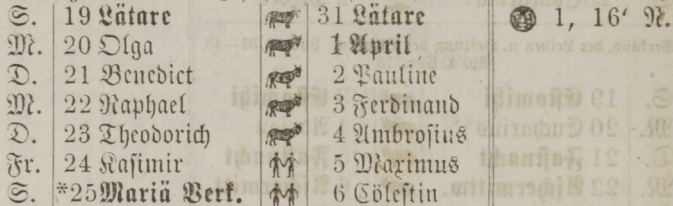 S. 19 Lätare 31 Lätare 1, 16' N.
M. 20 Olga 1 April
D. 21 Benedict 2 Pauline
M. 22 Raphael 3 Ferdinand
D. 23 Theodorich 4 Ambrosius
Fr. 24 Kasimir 5 Maximus
S. *25 Mariä Verk. 6 Cölestin